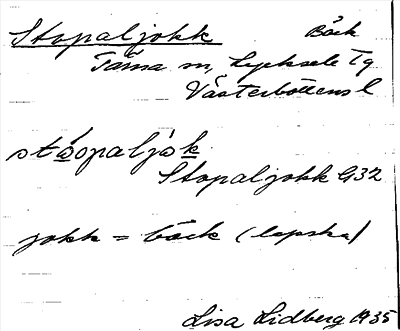 Stopaljokk Bäck
Tärna sn, Lycksele Tg
Västerbottens l
ståopaljåk
Stopaljokk G32
jokk = bäck (lapska)
Lisa Lidberg 1935